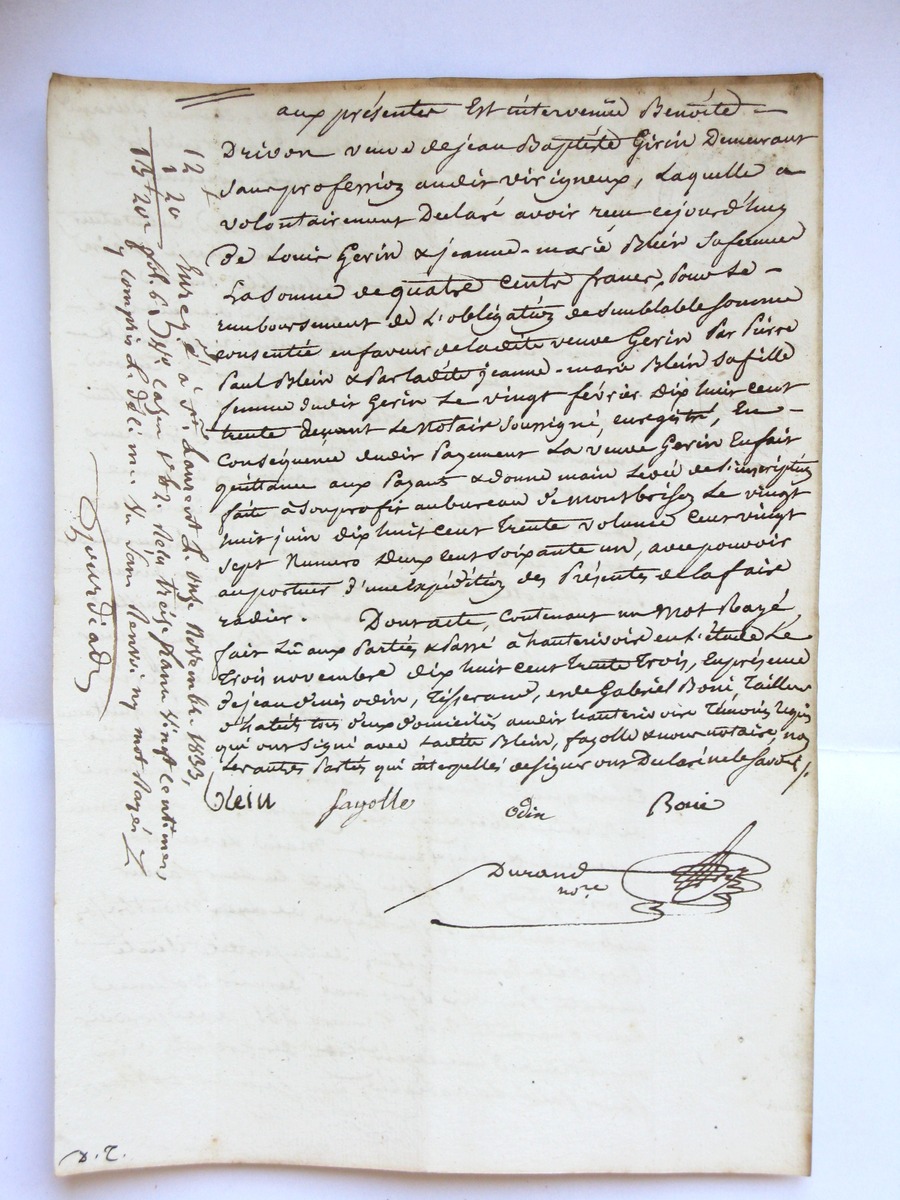 aux présentes Est intervenüe Benoite
Drivon veuve de jean Baptiste Girin Demeurant
sans profession audit virigneux, Laquelle a
volontairement Declaré avoir reçu cejourd'huy
De Louis Gerin & jeanne-marie Blein sa femme
La somme de quatre cents francs, Pour Le
remboursement de L'obligation de semblable somme
consentie en faveur de ladite veuve Gerin Par Pierre
Paul Blein & Par ladite jeanne-marie Blein sa fille
femme dudit Gerin Le vingt février Dix huit cent
trente devant Le Notaire soussigné, enregistré, En
Conséquence dudit Payement La veuve Gerin En fait
quittance aux Payants & donne main Levée de l'inscription
faite à son profit au bureau de montbrison Le vingt
huit juin dix huit cent trente volume cent vingt
sept Numero Deux cent soixante un, avec pouvoir
au porteur d'une Expédition des Présentes de la faire
radier. Dont acte, Contenant un Mot Rayé,
fait Lû aux Parties & Passé à hauterivoire en L'étude Le
Trois novembre dix huit cent trente trois, En présence
de jean odin, Tisserand, en de Gabriel Boni, Tailleur
d'habits tous deux domiciliés audit hauterivoire Témoins Requis
qui ont signé avec Ladite Blein, fayolle & nous notaire, non
Les autres Parties qui interpellés de signer ont Declaré ne le savoir
Blein fayolle Odin Boni
Durand
nore
12
1 20
13f 20c
Enreg.é à St Laurent L. onze Novembre 1833,
fol. 61 Vo Case 1 & 2. Reçu treize francs vingt centimes
y compris L. décime Un sans Renvoi mot rayé
Gourdiad
D. T.